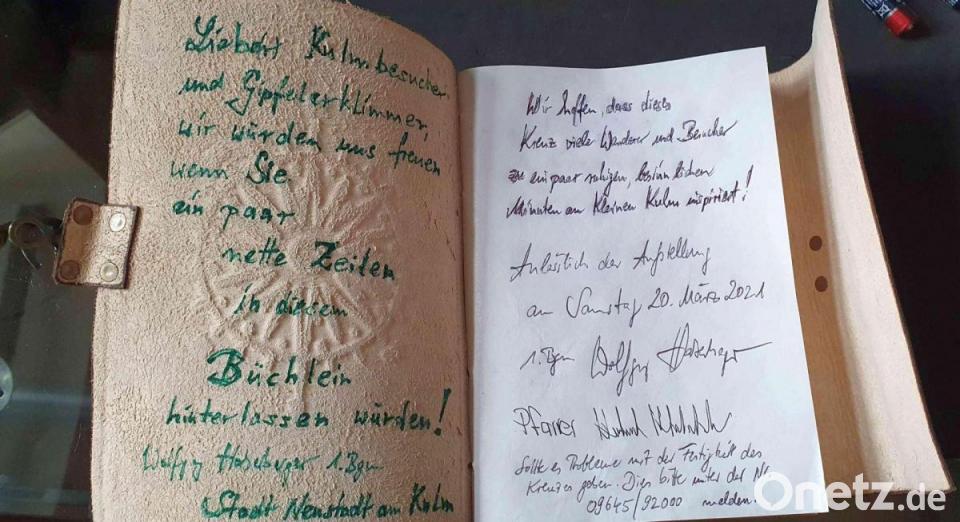 Liebart Kulmbesucher,
und Gipfelerklimmer,
wir würden uns freuen
wenn Sie
ein paar
nette Zeilen
in diesem
Büchlein
hinterlassen würden!
Wolfgang Haberberger 1. Bgm
Stadt Neustadt am Kulm
Wir hoffen, dass dieses
Kreuz viele Wanderer und Besucher
zu ein paar ruhigen, besinnlichen
Minuten am Kleinen Kulm inspiriert!
Anlässlich der Aufstellung
am Samstag 20. März 2021
1. Bgm Wolfgang Haberberger
Pfarrer
Sollte es Probleme mit der Festigkeit des
Kreuzes geben. Dies bitte unter der Nr.
09645/92000 melden.
Onetz.de